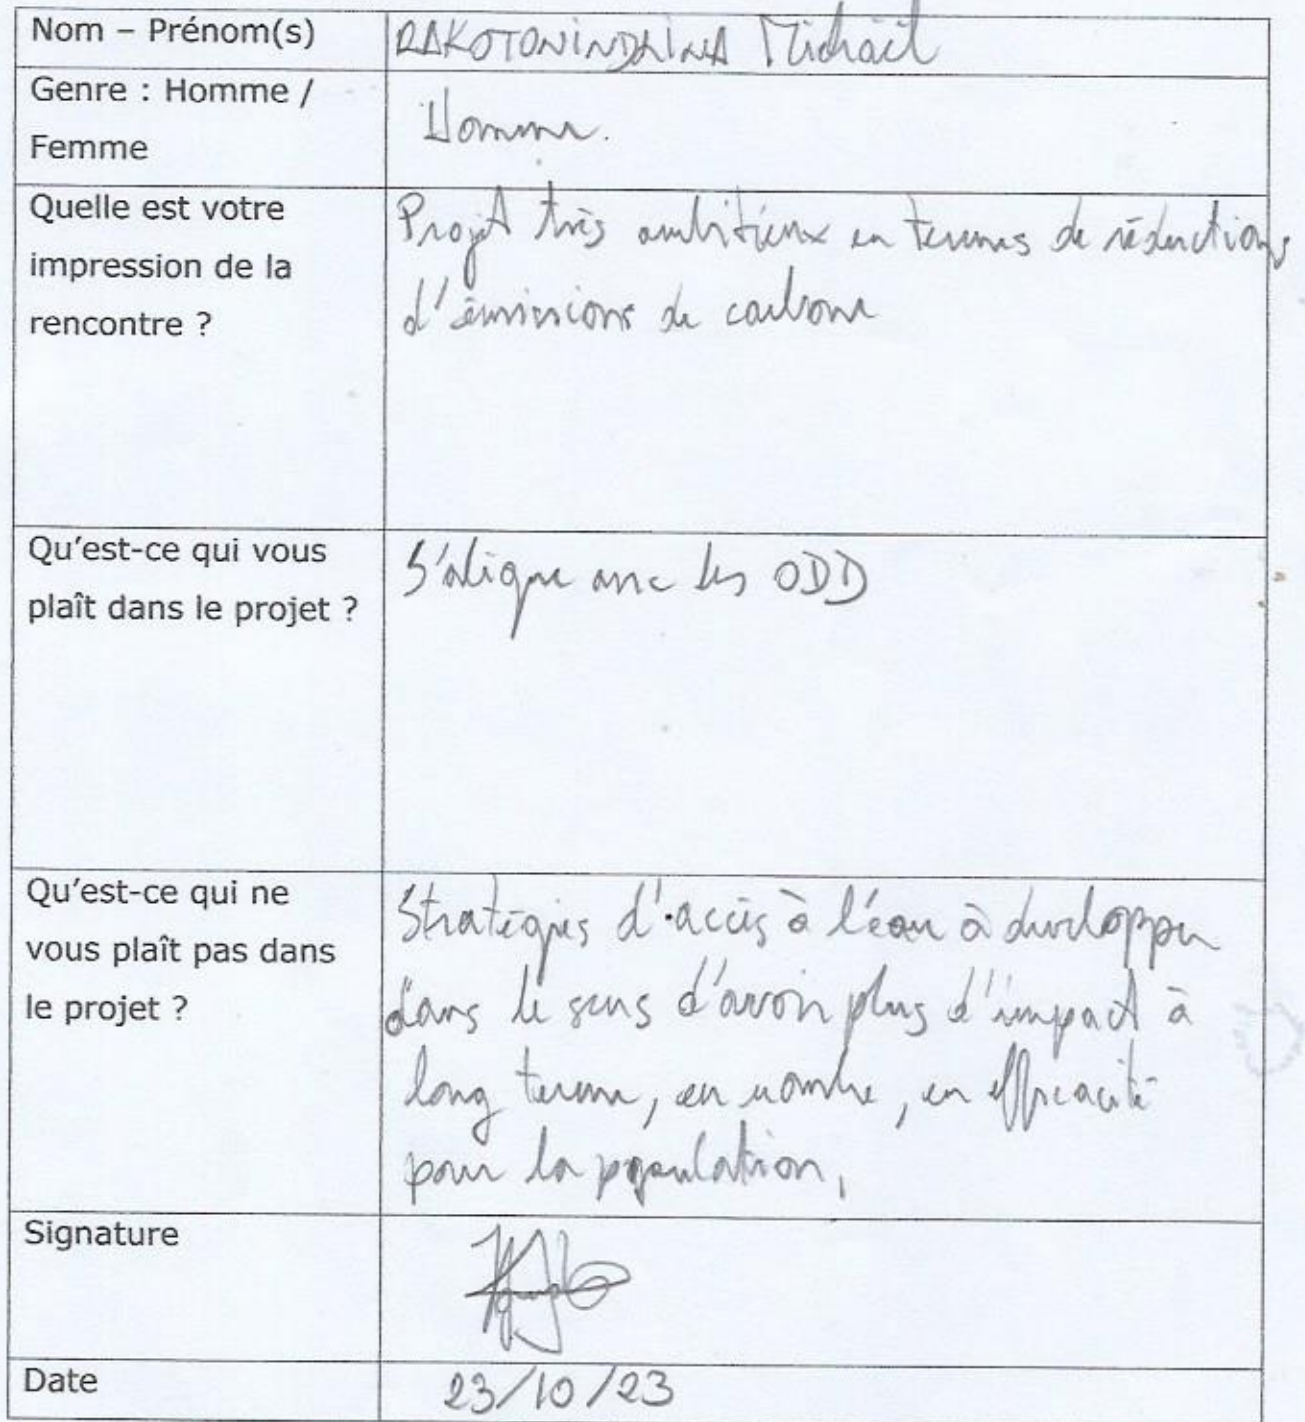 Nom – Prénom(s)
RAKOTONINDRINA Michaël
Genre : Homme /
Femme
Homme.
Quelle est votre
impression de la
rencontre ?
Projet très ambitieux en termes de réductions
d'émissions de carbone
Qu'est-ce qui vous
plaît dans le projet ?
S'aligne avec les ODD
Qu'est-ce qui ne
vous plaît pas dans
le projet ?
Stratégies d'accès à l'eau à développer
dans le sens d'avoir plus d'impact à
long terme, en nombre, en efficacité
pour la population,
Signature
Date
23/10/23